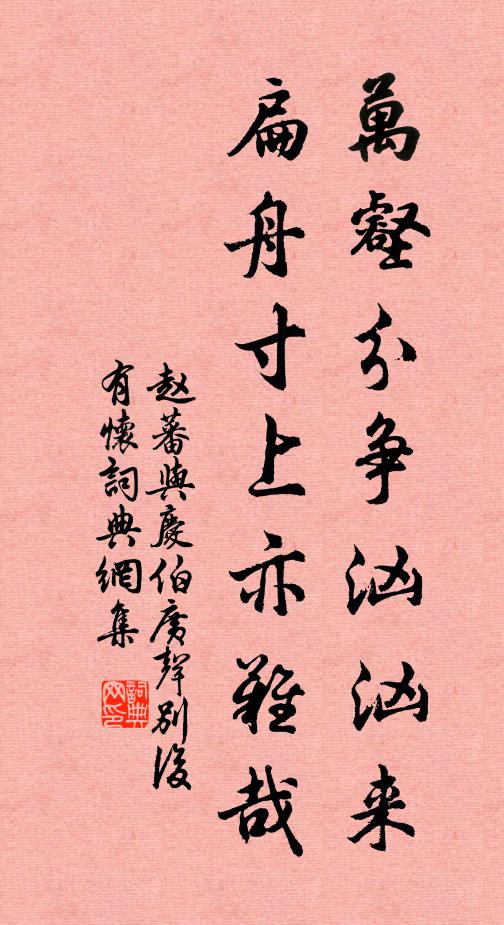 萬壑分争汹汹来
扁舟寸上亦難哉
赵蕃與慶伯廣聲别後
有懷詞典網集
詞典
网印